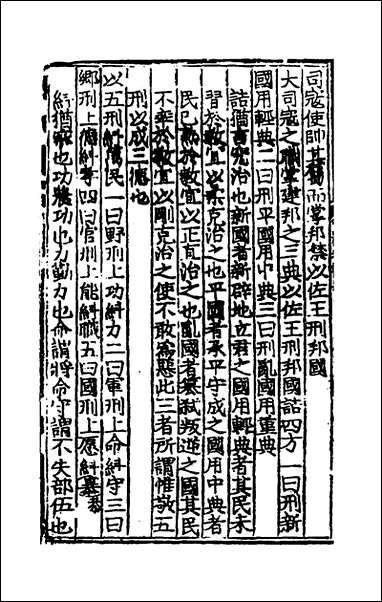 司寇使帥其屬而掌邦禁以佐王刑邦國
大司寇之職掌建邦之三典以佐王刑邦國詰四方一曰刑新
國用輕典二曰刑平國用中典三曰刑亂國用重典
詰猶責究治也新國者新辟地立君之國用輕典者其民未
習於教宜以柔克治之也平國者承平守成之國用中典者
民已熟於教宜以正直治之也亂國者篡弑叛逆之國其民
不率於教宜以剛克治之使不敢為惡此三者所謂惟敬五
刑以成三德也
以五刑糾萬民一曰野刑上功糾力二曰軍刑上命糾守三曰
鄉刑上德糾孝四曰官刑上能糾職五曰國刑上愿糾暴恭
糾猶察也功農功也力勤力也命謂將命守謂不失部伍也